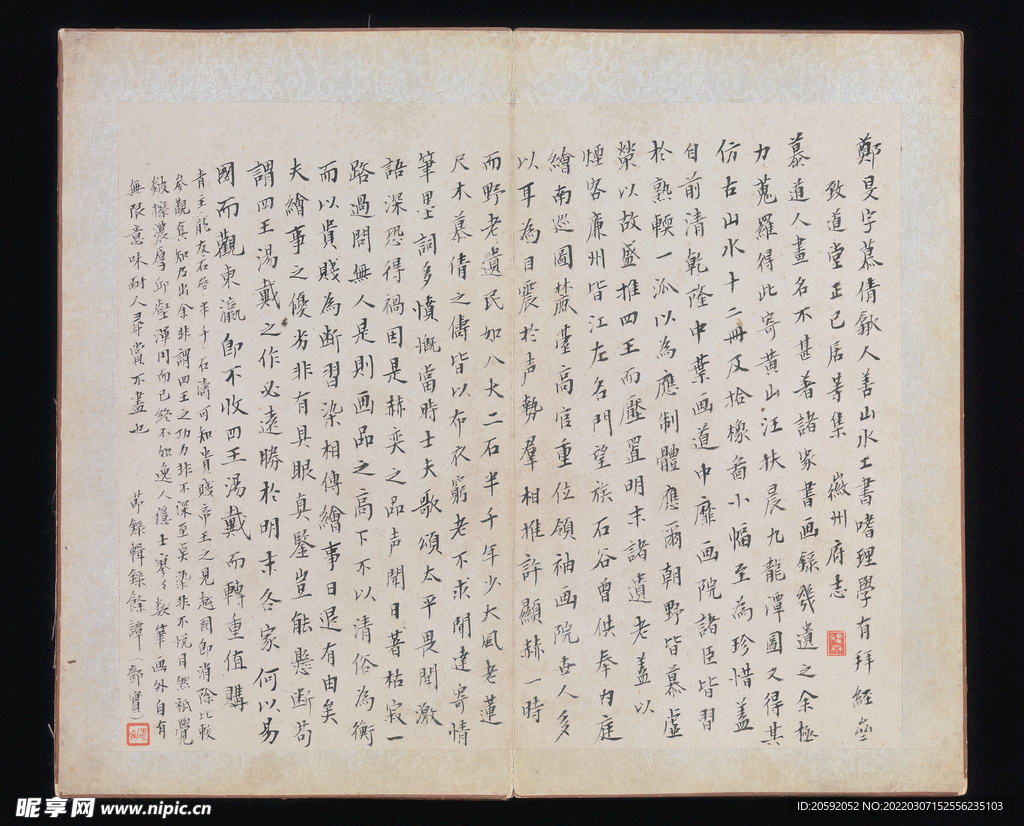 鄭旼字慕倩歙人善山水工書嗜理學有拜經齋
致道堂正己居等集 徽州府志
慕道人畫名不甚著諸家書画錄幾遺之余極
力蒐羅得此寄黄山汪扶晨九龍潭圖又得其
仿古山水十二冊及拾橡啚小幅至為珍惜蓋
自前清乾隆中葉画道中靡画院諸臣皆習
於熟輭一派以為應制體應爾朝野皆慕虛
榮以故盛推四王而壓置明末諸遺老蓋以
煙客廉州皆江左名門望族石谷曾供奉内庭
繪南巡圖麓臺高官重位領袖画院杳人多
以耳為目震於声勢羣相推許顯赫一時
而野老遺民如八大二石半千年少大風老蓮
尺木慕倩之儔皆以布衣窮老不求聞達寄情
筆墨詞多憤慨當時士夫歌頌太平畏聞激
語深恐得禍因是赫奕之品声聞日著枯寂一
路過問無人是則画品之高下不以清俗為衡
而以貴賤為断習染相傳繪事日退有由矣
夫繪事之優劣非有具眼真鑒豈能懸断苟
謂四王湯戴之作必遠勝於明末各家何以易
國而觀東瀛即不收四王湯戴而轉重值購
青主龍友石谿半千石濤可知貴賤帝王之見越國即消除比較
参觀真知乃出余非謂四王之功力非不深至莫染非不悦目然祗覺
皴擦濃厚邱壑渾同而已終不如逸人隱士寥寥数筆画外自有
無限意味耐人尋賞不盡也 節錄輯錄餘譚 鄧實
昵享网 www.nipic.cn
ID:20592052 NO:20220307152556235103